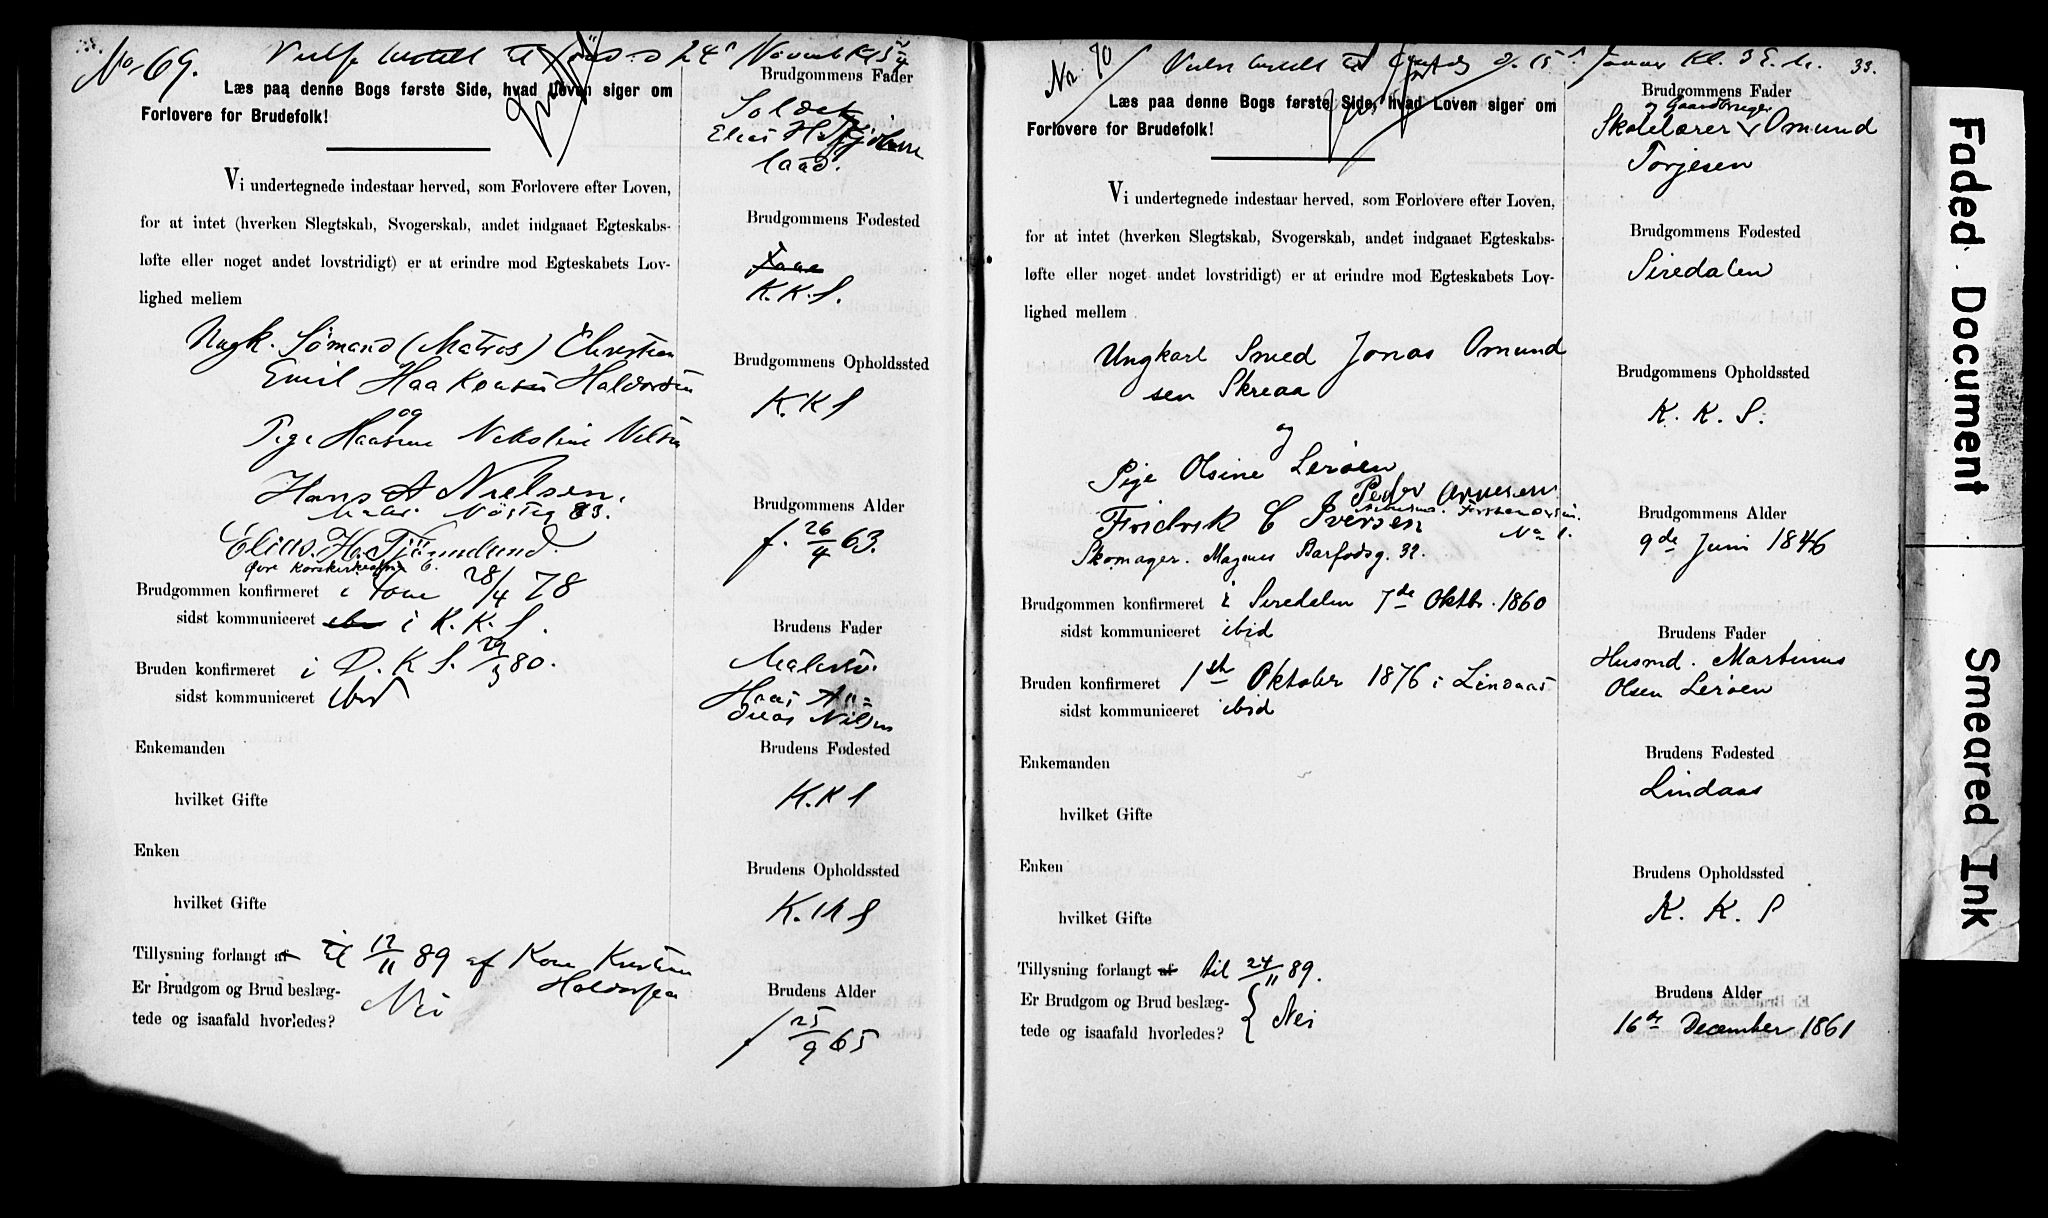 No 69. 24 Novemb Kl 5
Læs paa denne Bogs første Side, hvad Loven siger om
Forlovere for Brudefolk!
Vi undertegnede indestaar herved, som Forlovere efter Loven,
for at intet (hverken Slegtskab, Svogerskab, andet indgaaet Egteskabs-
løfte eller noget andet lovstridigt) er at erindre mod Egteskabets Lov-
lighed mellem
Ungk. Sømand (Matros) Christian
Emil Haakonsen Haldorsen
og
Pige Nikoline Nilsen
Hans A Nielsen.
Maler Nøsteg 83.
Elias. H.
Øvre 6.
Brudgommen konfirmeret i 28/4 78
sidst kommuniceret i K. K. S.
Bruden konfirmeret i D. K S. 80.
sidst kommuniceret ibid
Enkemanden
hvilket Gifte
Enken
hvilket Gifte
Tillysning forlangt af til 17/11 89 af Kristian
Haldorsen
Er Brudgom og Brud beslæg-
tede og isaafald hvorledes? Nei
Brudgommens Fader
Soldat
Elias H.
Brudgommens Fødested
K.K.S.
Brudgommens Opholdssted
K.K S
Brudgommens Alder
f. 26/4 63.
Brudens Fader
Malersv.
Hans
Nilsen
Brudens Fødested
K.K S
Brudens Opholdssted
K.K S
Brudens Alder
f 25/9 65
No. 70 15 Januar Kl. 3 E. M. 33.
Læs paa denne Bogs første Side, hvad Loven siger om
Forlovere for Brudefolk!
Vi undertegnede indestaar herved, som Forlovere efter Loven,
for at intet (hverken Slegtskab, Svogerskab, andet indgaaet Egteskabs-
løfte eller noget andet lovstridigt) er at erindre mod Egteskabets Lov-
lighed mellem
Ungkarl Smed Jonas Omund
sen Skreaa
og
Pige Olsine Lerøen
Peder Arnesen
Fredrik C Iversen No 1.
Skomager. Magnus Barfodsg. 32.
Brudgommen konfirmeret i Siredalen 7de Oktbr. 1860
sidst kommuniceret ibid
Bruden konfirmeret 1ste Oktober 1876 i Lindaas
sidst kommuniceret ibid
Enkemanden
hvilket Gifte
Enken
hvilket Gifte
Tillysning forlangt af til 24/11 89.
Er Brudgom og Brud beslæg-
tede og isaafald hvorledes? Nei
Brudgommens Fader
og Gaardbruger
Skolelærer Omund
Torjesen
Brudgommens Fødested
Siredalen
Brudgommens Opholdssted
K. K. S.
Brudgommens Alder
9de Juni 1846
Brudens Fader
Husmd. Martinus
Olsen Lerøen
Brudens Fødested
Lindaas
Brudens Opholdssted
K. K. S
Brudens Alder
16de December 1861
Faded Document
Smeared Ink